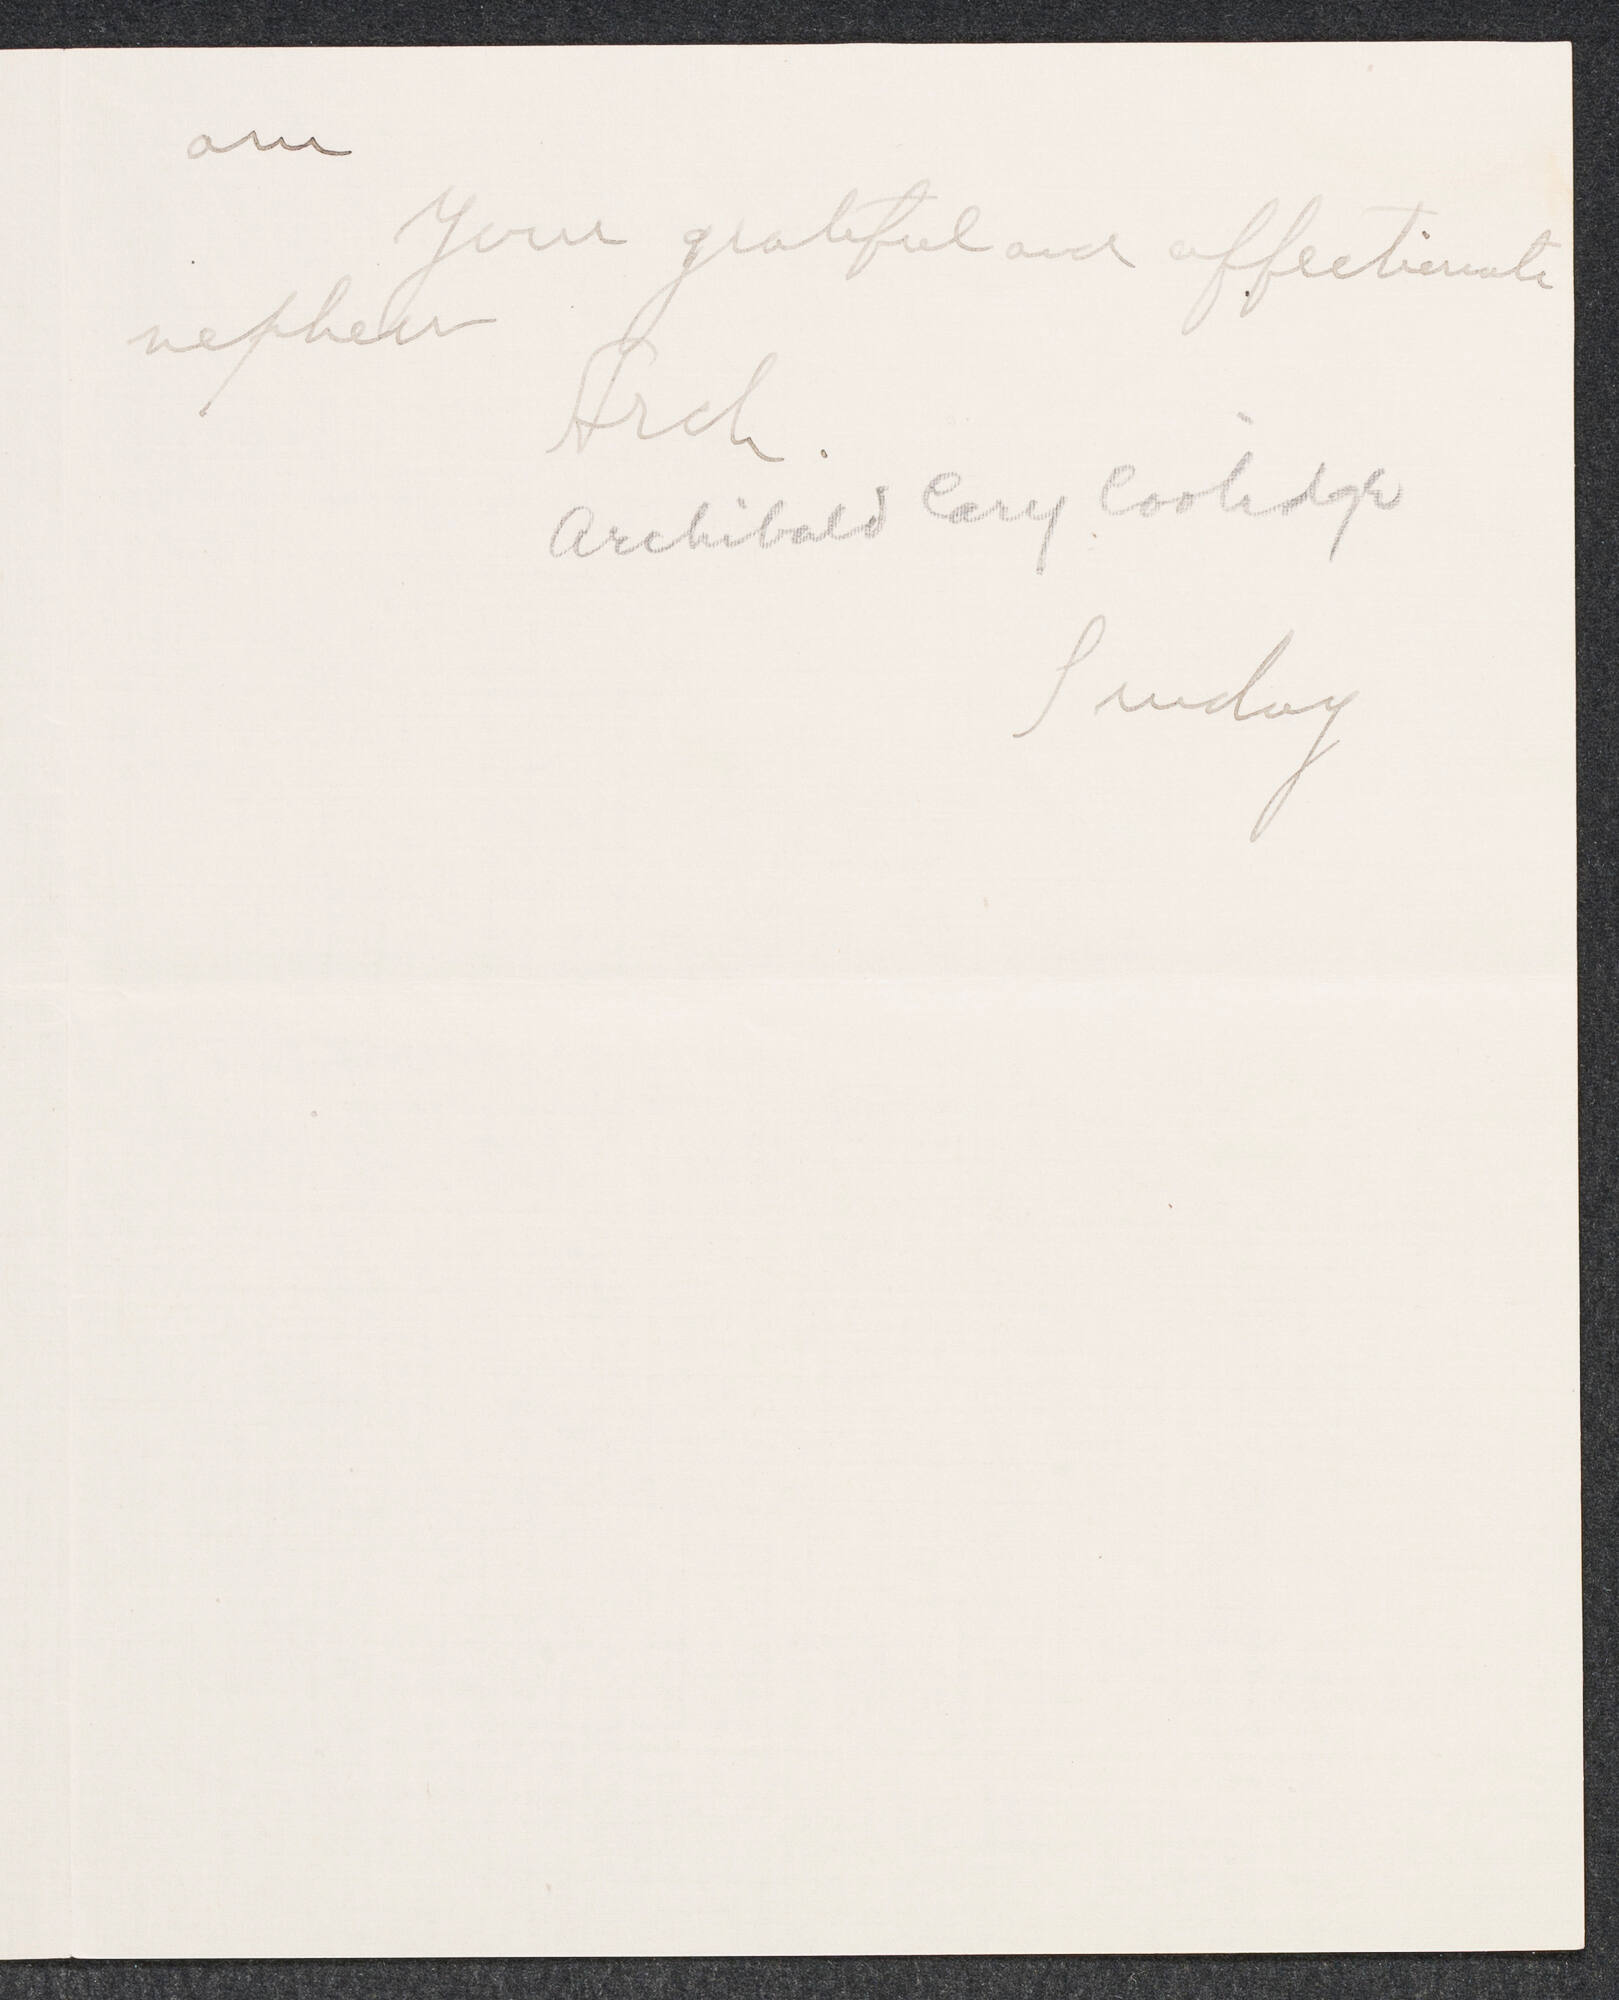 am
Your grateful and affectionate
nephew
Arch.
Archibald Cary Coolidge
Sunday